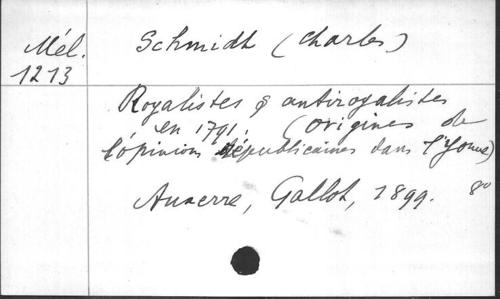 Mél.
1213
Schmidt (Charles)
Royalistes & antiroyalistes
en 1791, (origines de
l'opinion républicaines dans l'Yonne)
Auxerre, Gallot, 1899. 8°